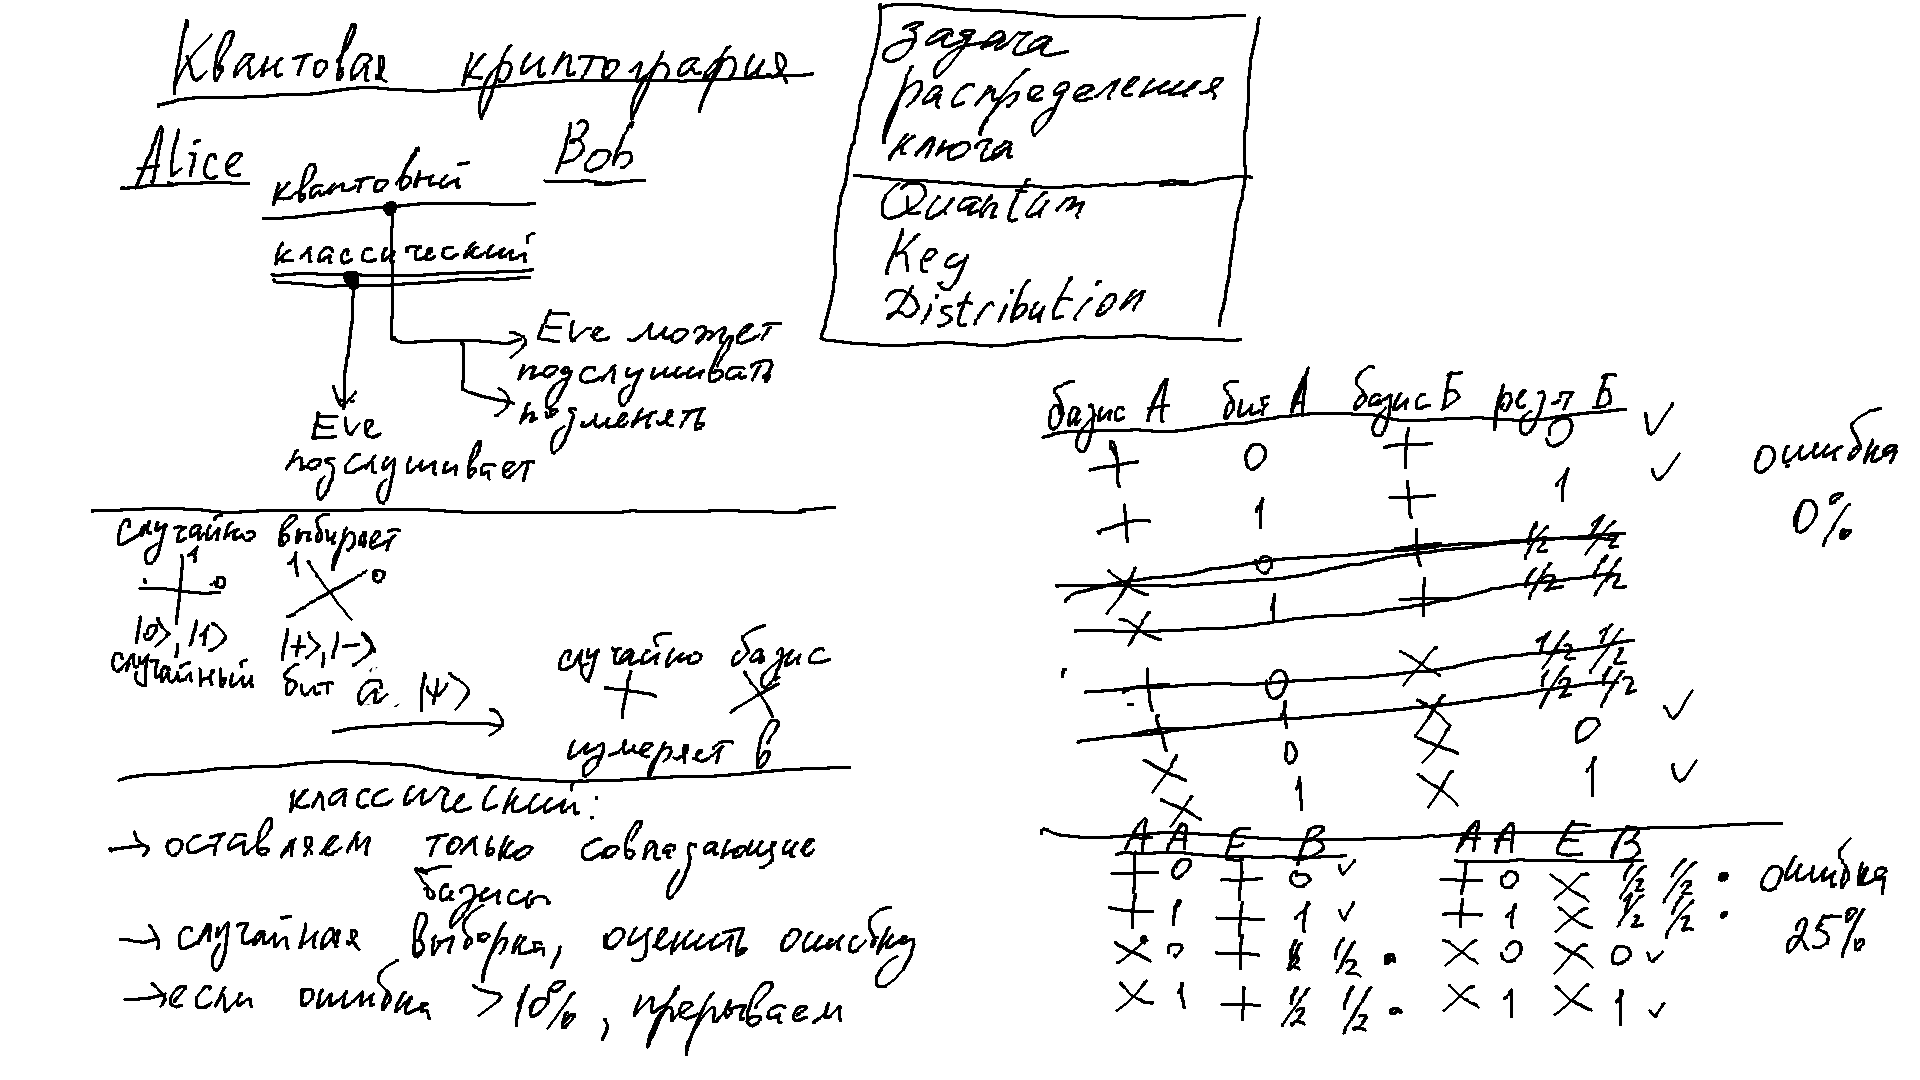 Квантовая криптография
Alice
Bob
квантовый
классический
Eve может
подслушивать
подменять
Eve
подслушивает
задача
распределения
ключа
Quantum
Key
Distribution
случайно выбирает
1 0 1 0
|0>, |1> |+>, |->
случайный бит a. |Ψ>
случайно базис
+ ×
измеряет b
классический:
→ оставляем только совпадающие
базисы
→ случайная выборка, оценить ошибку
→ если ошибка > 10%, прерываем
базис A бит A базис Б резлт Б
+ 0 + 0 ✓
+ 1 + 1 ✓
× 0 + 1/2 1/2
× 1 + 1/2 1/2
+ 0 × 1/2 1/2
+ 1 × 1/2 1/2
× 0 × 0 ✓
× 1 × 1 ✓
ошибка
0%
A A E B
+ 0 + 0 ✓
+ 1 + 1 ✓
× 0 + 1/2 1/2 •
× 1 + 1/2 1/2 •
A A E B
+ 0 × 1/2 1/2 •
+ 1 × 1/2 1/2 •
× 0 × 0 ✓
× 1 × 1 ✓
ошибка
25%